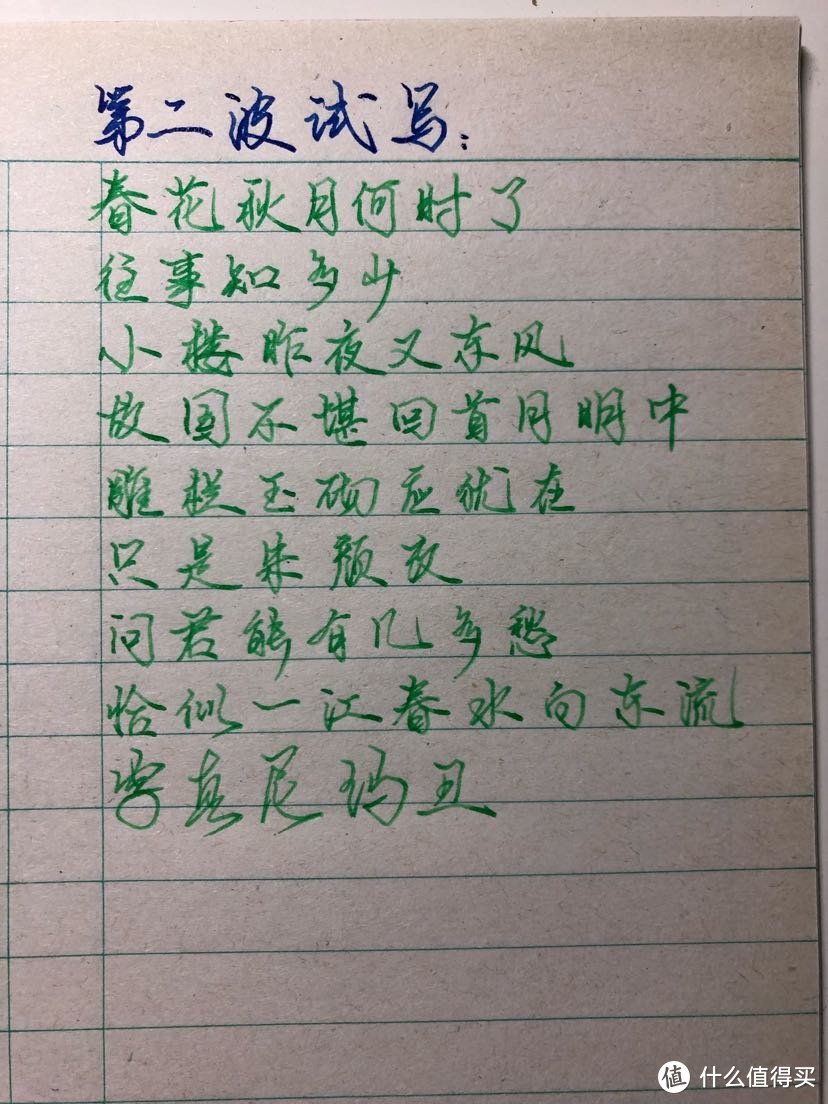 第二波试写：
春花秋月何时了
往事知多少
小楼昨夜又东风
故国不堪回首月明中
雕栏玉砌应优在
只是朱颜改
问君能有几多愁
恰似一江春水向东流
字真尼玛丑
值 什么值得买